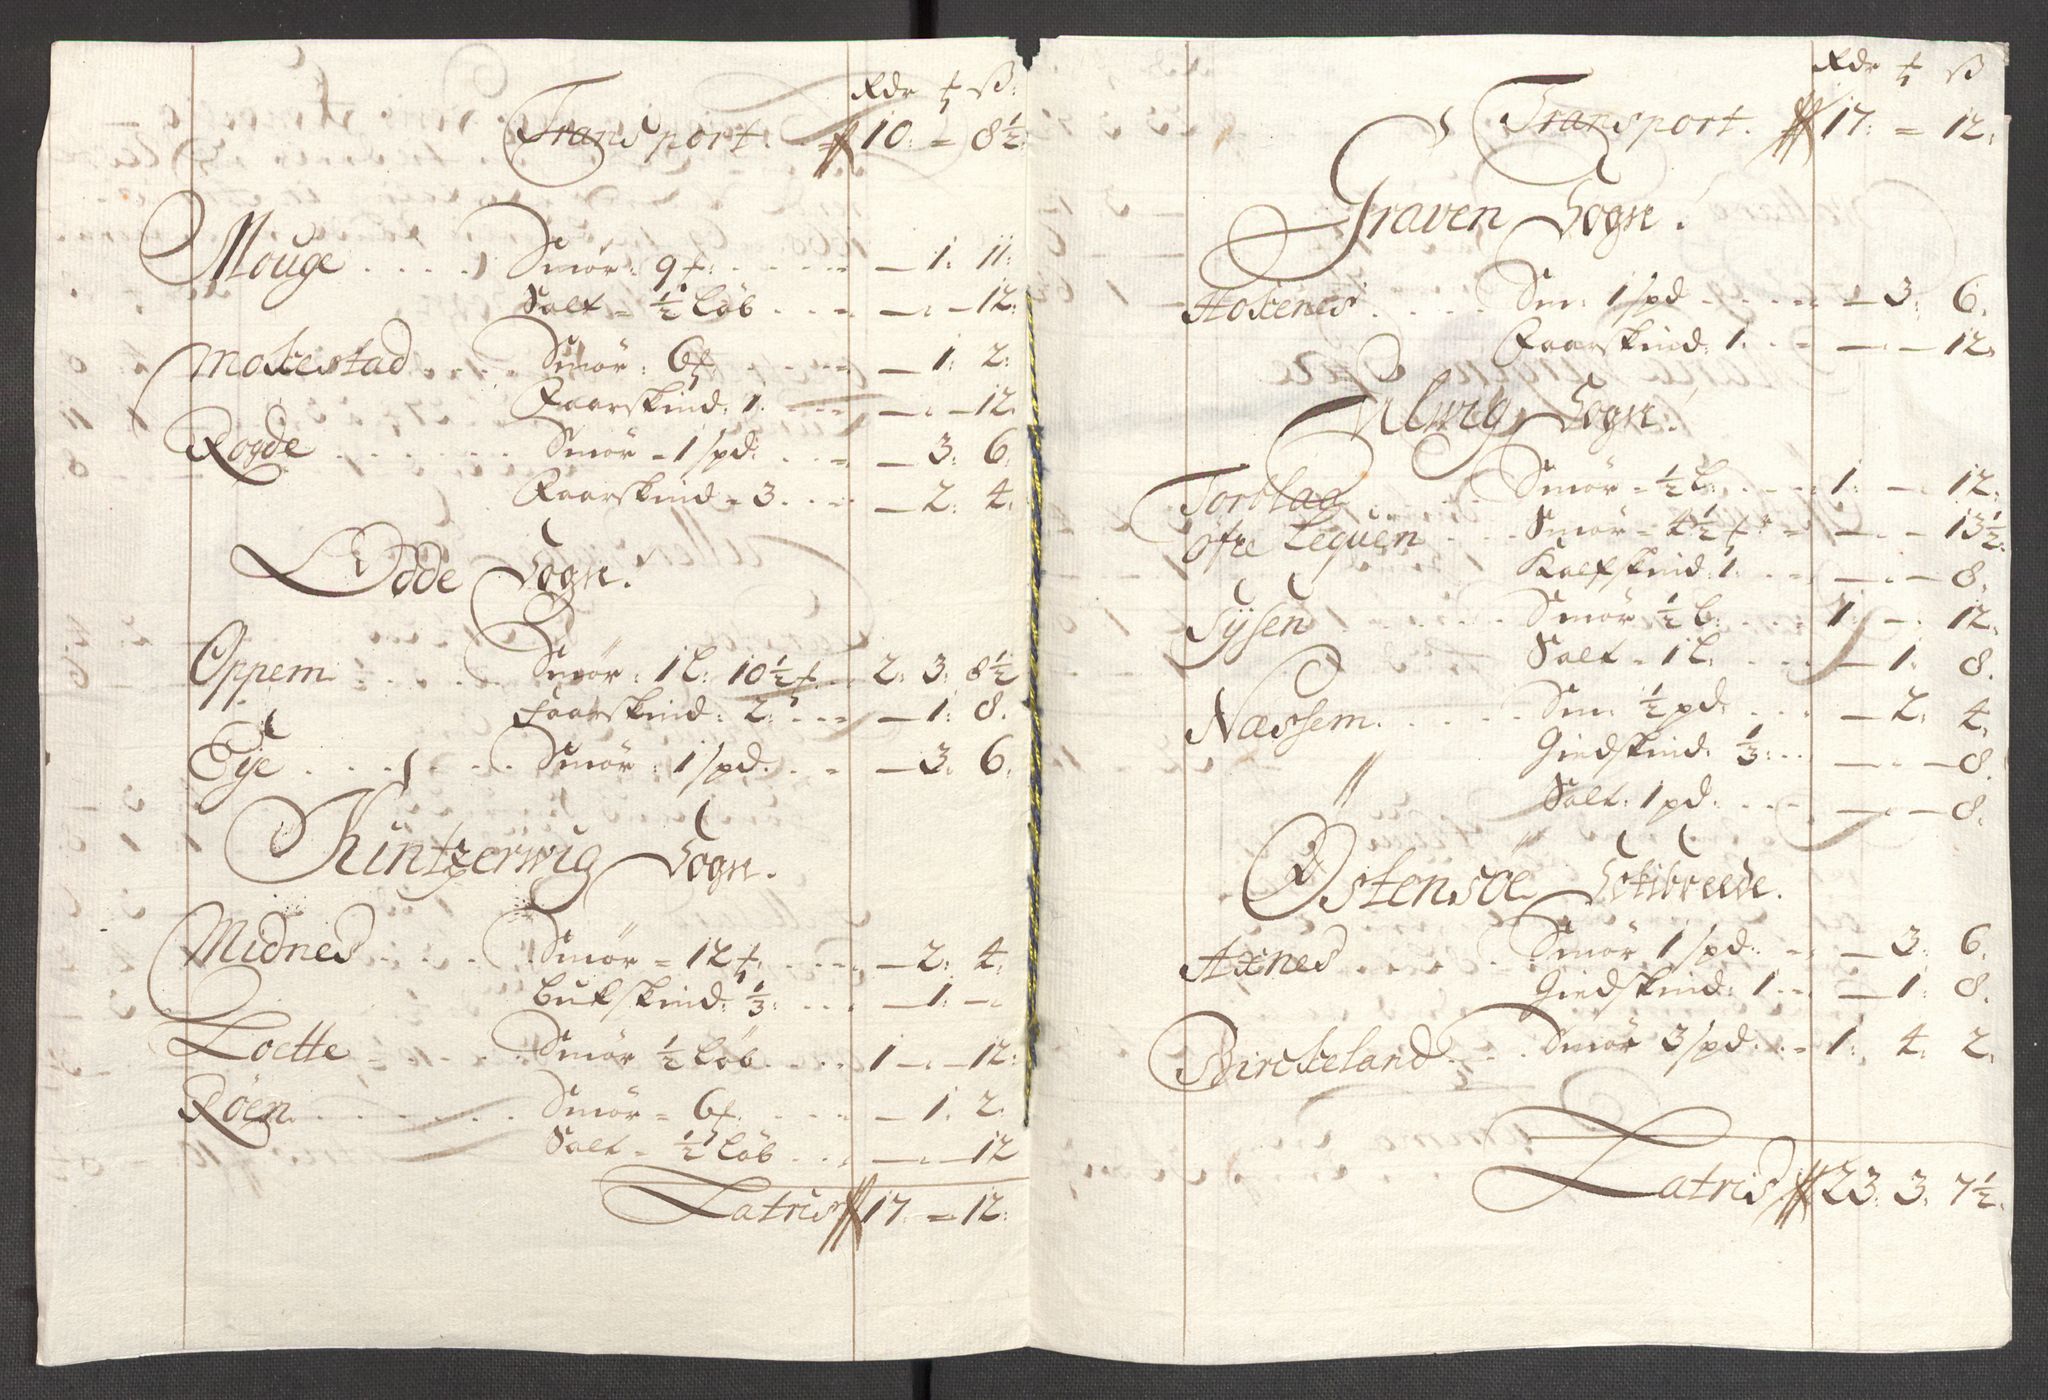 Rdr ß:
Transport. 10: = 8½:
Mouge . . . . Smör: 9 — 1: 11:
Salt = ½ Löb . . . — " — 12:
Mokestad . . . . Smör: 6 — 1: 2:
Faarskind: 1. — " — 12:
Rogde . . . . . Smör = 1 spd: . . = — 3: 6:
Faarskind = 3. — 2: 4:
Odde Sogn.
Oppem Smör: 1 L: 10½ 2: 3: 8½
Faarskind: 2: — 1: 8.
Eÿe . . . . . . Smör: 1 spd: — 3: 6:
Kintzerwig Sogn.
Midnes . . . . Smör = 12 — 2: 4:
bukskind: ⅓: . . . — 1: —
Loctte Smör ½ Löb . . . . 1 — " — 12:
Röen . . . . . . Smör = 6 — 1: 2:
Salt = ½ Löb . . . — " — 12
Latris 17: = 12:
Rdr ß
Transport. 17: = 12:
Graven Sogn.
Hokenes . . . . Sm: 1 spd — 3: 6.
Faarskind: 1. — " — 12.
Ulwig Sogn.
Torblaa . . . Smör = ½ L: . . . 1: — 12:
öfre Lequen . . . Smör = 4½ — " — 13½:
Kalfskind: 1. — " — 8.
Sÿsen . . . . Smör ½ L. . . . 1: — 12:
Salt = 1 L. — 1: 8.
Næssem . . . . . Sm: ½ pd — 2: 4.
Giedskind: ⅓: . . — " — 8.
" Salt: 1 pd: . . . — " — 8.
Östensöe Schibreede.
Axnes . . . . . Smör 1 spd: — 3: 6.
Giedskind: 1 . . — 1: 8.
Birckeland . . . Smör 3 spd: . . 1: 4: 2.
Latris 23: 3: 7½.